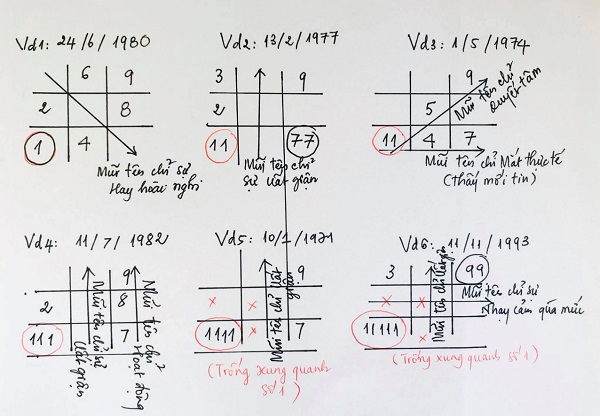 Vd1: 24/6/1980
6 9
2 8
1 4
Mũi tên chỉ sự
Hay hoài nghi
Vd2: 13/2/1977
3 9
2
11 77
Mũi tên chỉ
sự uất giận
Vd3: 1/5/1974
9
5
11 4 7
Mũi tên chỉ
Quyết tâm
Mũi tên chỉ Mất thực tế
(Thấy mới tin)
Vd4: 11/7/1982
9
2 8
111 7
Mũi tên chỉ sự
Uất giận
Mũi tên chỉ
Hoạt động
Vd5: 10/1/1971
9
x x
1111 x 7
Mũi tên chỉ Uất
giận
(Trống xung quanh
số 1)
Vd6: 11/11/1993
3 99
x x
11111 x
Mũi tên chỉ Uất giận
Mũi tên chỉ sự
Nhạy cảm quá mức
(Trống xung quanh số 1)